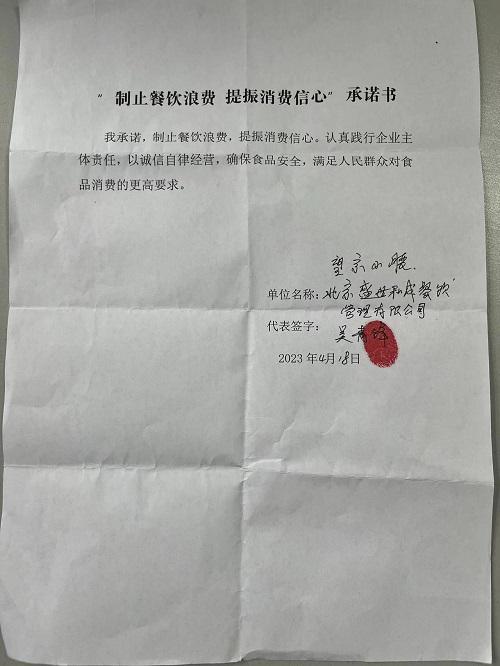 “制止餐饮浪费 提振消费信心”承诺书
我承诺，制止餐饮浪费，提振消费信心。认真践行企业主
体责任，以诚信自律经营，确保食品安全，满足人民群众对食
品消费的更高要求。
望京小腰
单位名称：北京盛世私成餐饮
管理有限公司
代表签字：吴青峰
2023年4月18日